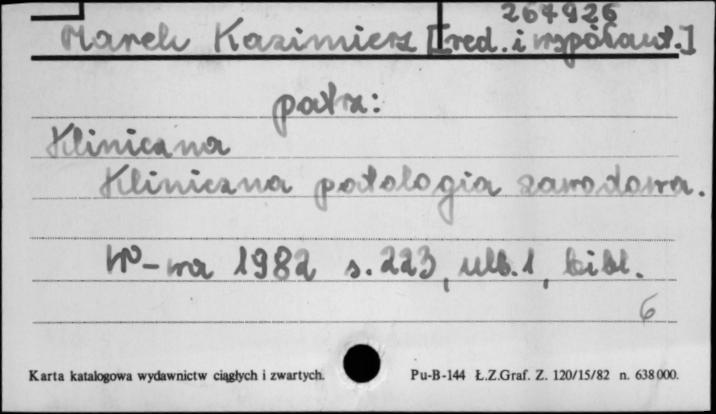 267926
Marek Kazimierz [red. i współaut.]
patrz:
Kliniczna
Kliniczna patologia zawodowa.
W-wa 1982 s. 223, ulb. 1, bibl.
6
Karta katalogowa wydawnictw ciągłych i zwartych.
Pu-B-144 Ł.Z.Graf. Z. 120/15/82 n. 638 000.